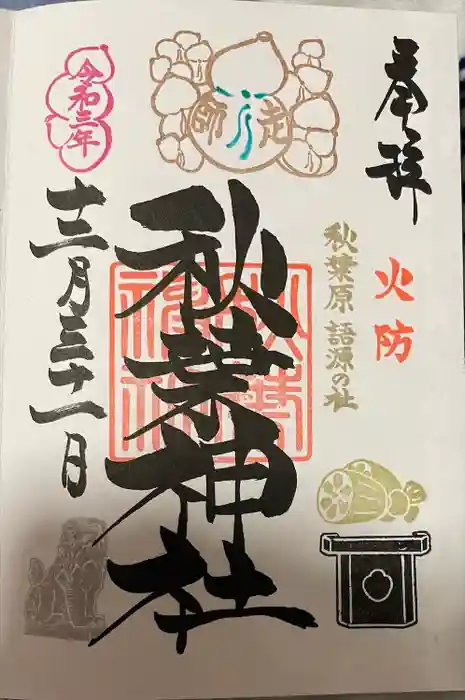 奉拝
火防
秋葉原 語源の社
師走
秋葉神社
秋葉
神社
令和三年
十二月三十一日